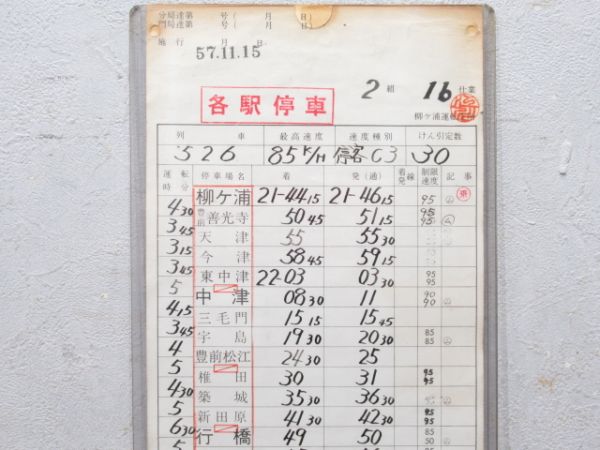 分局達第 号 ( 月 日)
門局達第 号 ( 月 日)
施行 月 日
57.11.15
各駅停車
2組 16仕業
柳ケ浦運転
列車 最高速度 速度種別 けん引定数
526 85K/H 停客C3 30
運転時分 停車場名 着 発(通) 着発線 制限速度 記事
柳ケ浦 21-44 15 21-46 15 95
4 30 豊前善光寺 50 45 51 15 95 95
3 45 天津 55 55 30
3 15 今津 58 45 59 15
3 45 東中津 22-03 03 30 95 95
5 中津 08 30 11 90 90
4 15 三毛門 15 15 15 45
3 45 宇島 19 30 20 30 85 85
4 豊前松江 24 30 25
5 椎田 30 31 95 95
4 30 築城 35 30 36 30
5 新田原 41 30 42 30 95 95
6 30 行橋 49 50 85 50
5